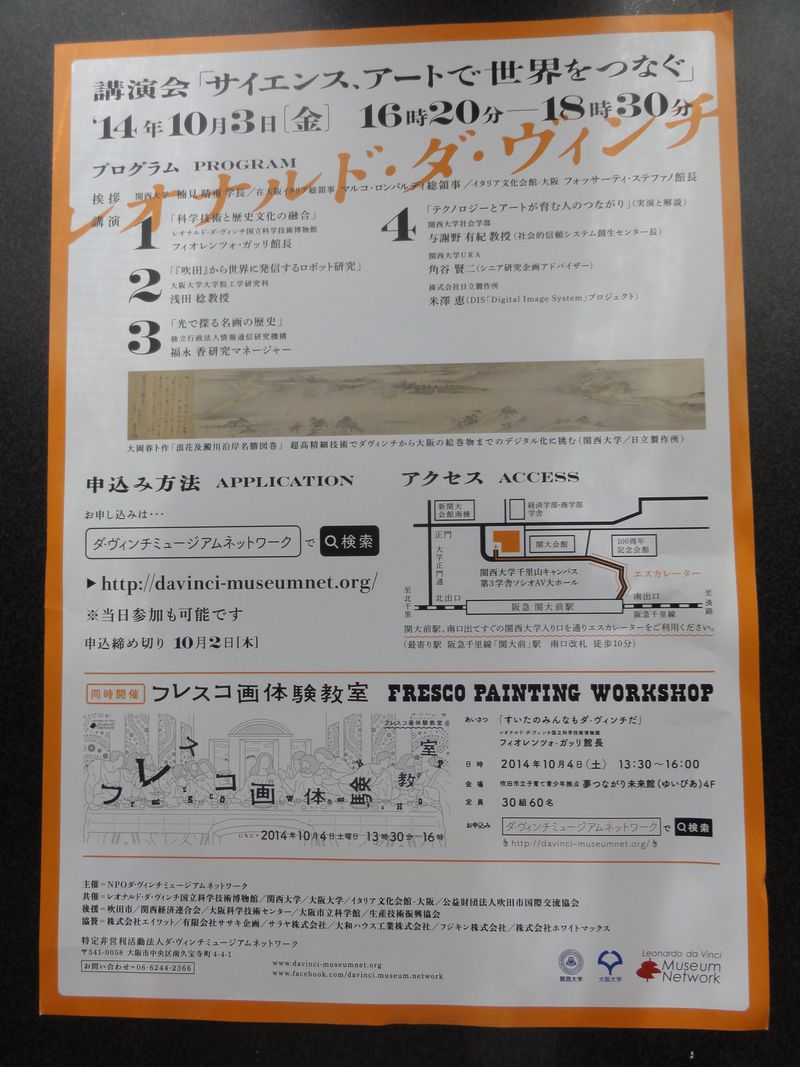 講演会「サイエンス、アートで世界をつなぐ」
'14年10月3日[金] 16時20分—18時30分
レオナルド・ダ・ヴィンチ
プログラム PROGRAM
挨拶 関西大学 楠見晴重学長／在大阪イタリア総領事 マルコ・ロンバルディ総領事／イタリア文化会館-大阪 フォッサーティ・ステファノ館長
講演
1 「科学技術と歴史文化の融合」
レオナルド・ダ・ヴィンチ国立科学技術博物館
フィオレンツォ・ガッリ館長
2 「『吹田』から世界に発信するロボット研究」
大阪大学大学院工学研究科
浅田 稔教授
3 「光で探る名画の歴史」
独立行政法人情報通信研究機構
福永 香研究マネージャー
4 「テクノロジーとアートが育む人のつながり」（実演と解説）
関西大学社会学部
与謝野 有紀 教授（社会的信頼システム創生センター長）
関西大学URA
角谷 賢二（シニア研究企画アドバイザー）
株式会社日立製作所
米澤 恵（DIS「Digital Image System」プロジェクト）
大岡春卜作「浪花及澱川沿岸名勝図巻」 超高精細技術でダヴィンチから大阪の絵巻物までのデジタル化に挑む（関西大学／日立製作所）
申込み方法 APPLICATION
お申し込みは・・・
ダ・ヴィンチミュージアムネットワーク で 検索
▶http://davinci-museumnet.org/
※当日参加も可能です
申込締め切り 10月2日[木]
アクセス ACCESS
新関大会館南棟
経済学部・商学部学舎
正門
大学正門通
関大会館
100周年記念会館
関西大学千里山キャンパス
第3学舎ソシオAV大ホール
エスカレーター
至北千里
北出口
阪急 関大前駅
南出口
阪急千里線
至淡路
関大前駅、南口出てすぐの関西大学入り口を通りエスカレーターをご利用ください。
（最寄り駅 阪急千里線「関大前」駅 南口改札 徒歩10分）
同時開催 フレスコ画体験教室 FRESCO PAINTING WORKSHOP
フレスコ画体験教室
フレスコ画体験教室
にちじ・2014年10月4日土曜日 13時30分〜16時
あいさつ 「すいたのみんなもダ・ヴィンチだ」
レオナルド・ダ・ヴィンチ国立科学技術博物館
フィオレンツォ・ガッリ館長
日時 2014年10月4日（土） 13:30〜16:00
会場 吹田市立子育て青少年拠点 夢つながり未来館（ゆいぴあ）4F
定員 30組60名
お申込み ダ・ヴィンチミュージアムネットワーク で 検索
http://davinci-museumnet.org/
主催＝NPOダ・ヴィンチミュージアムネットワーク
共催＝レオナルド・ダ・ヴィンチ国立科学技術博物館／関西大学／大阪大学／イタリア文化会館-大阪／公益財団法人吹田市国際交流協会
後援＝吹田市／関西経済連合会／大阪科学技術センター／大阪市立科学館／生産技術振興協会
協賛＝株式会社エイワット／有限会社ササキ企画／サラヤ株式会社／大和ハウス工業株式会社／フジキン株式会社／株式会社ホワイトマックス
特定非営利活動法人ダ・ヴィンチミュージアムネットワーク
〒541-0058 大阪市中央区南久宝寺町4-4-1
お問い合わせ＝06-6244-2366
www.davinci-museumnet.org
www.facebook.com/davinci.museum.network
関西大学
大阪大学
Leonardo da Vinci
Museum
Network